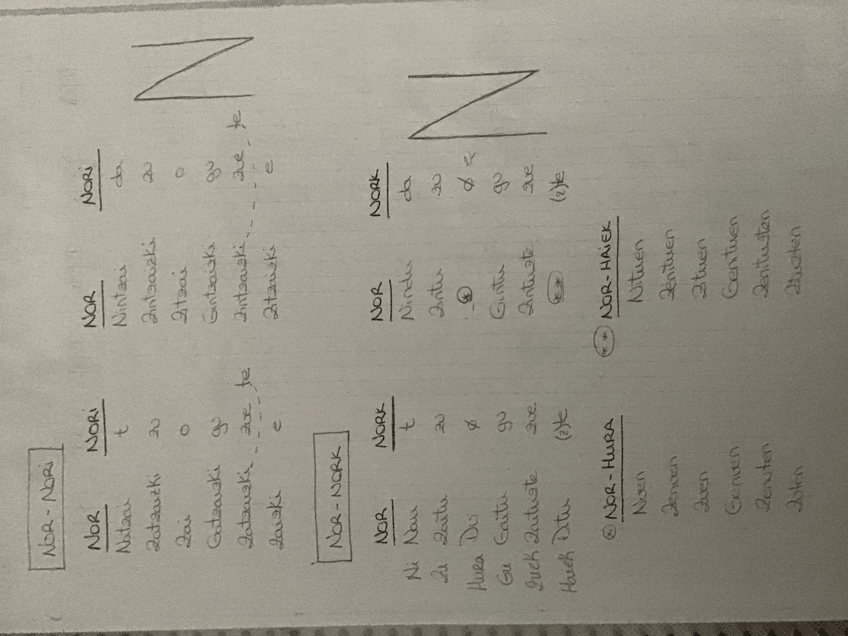 NOR - NORI
NOR NORI NOR NORI
Natzai t Nintzai da
Zatzaizki zu Zintzaizki zu
Zai o Zitzai o
Gatzaizki gu Gintzaizki gu
Zatzaizki zue te Zintzaizki zue te
Zaizki e Zitzaizki e
N
NOR - NORK
NOR NORK NOR NORK
Ni Nau t Nindu da
Zu Zaitu zu Zintu zu
Hura Du ø * ø
Gu Gaitu gu Gintu gu
Zuek Zaituzte zue Zintuzte zue
Haiek Ditu (z)te ** (z)te
N
* NOR - HURA ** NOR - HAIEK
Nuen Nituen
Zenuen Zenituen
Zuen Zituen
Genuen Genituen
Zenuten Zenituzten
Zuten Zituzten